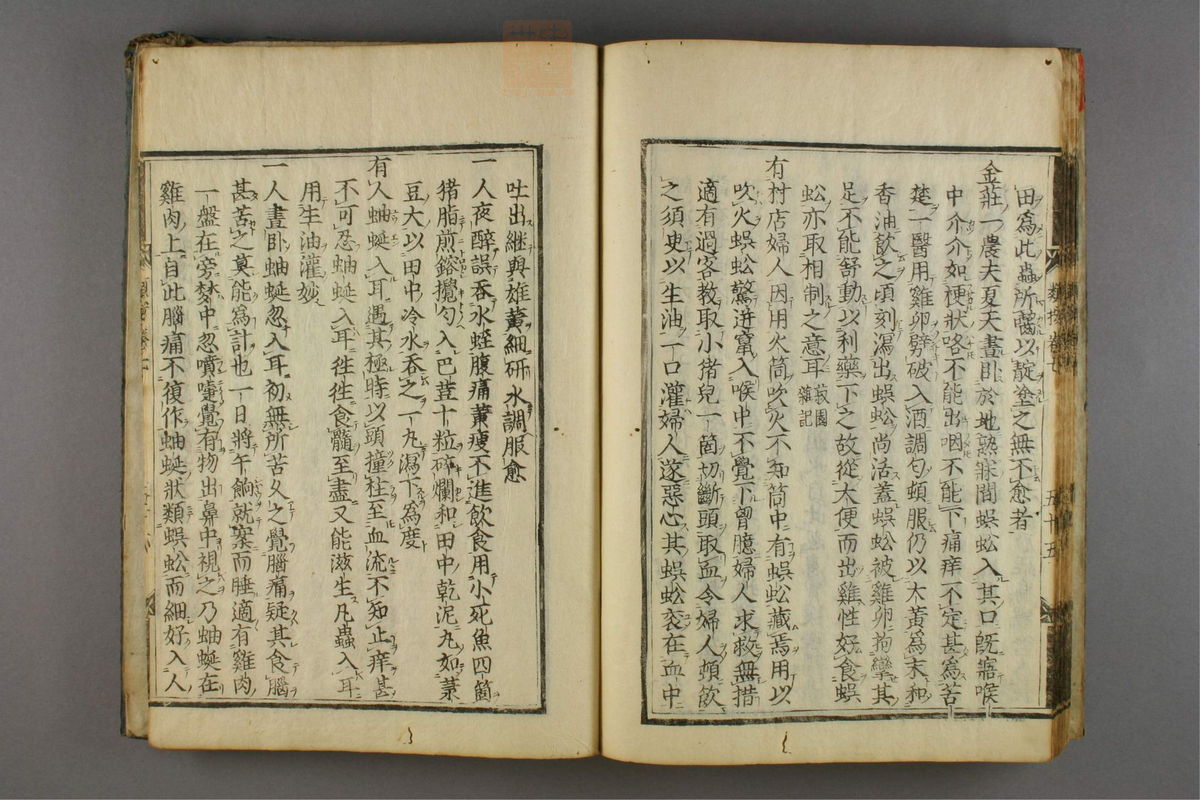 田爲此蟲所齧以靛塗之無不愈者
金莊一農夫夏天晝卧於地熟寐間蜈蚣入其口既寤喉
中介介如梗狀咯不能出咽不能下痛痒不定甚爲苦
楚一醫用雞卵劈破入酒調勻頓服仍以大黃爲末和
香油飲之頃刻瀉出蜈蚣尚活蓋蜈蚣被雞卵拘攣其
足不能舒動以利藥下之故從大便而出雞性好食蜈
蚣亦取相制之意耳菽園雜記
有村店婦人因用火筒吹火不知筒中有蜈蚣藏焉用以
吹火蜈蚣驚迸竄入喉中不覺下胷臆婦人求救無措
適有過客教取小猪兒一箇切斷頭取血令婦人頓飲
之須臾以生油一口灌婦人遂惡心其蜈蚣衮在血中
吐出継與雄黃細研水調服愈
一人夜醉誤吞水蛭腹痛黃瘦不進飲食用小死魚四箇
猪脂煎鎔攪勻入巴荳十粒碎爛和田中乾泥丸如菉
豆大以田中冷水吞之一丸瀉下爲度
有人蚰蜒入耳遇其極時以頭撞柱至血流不知止痒甚
不可忍蚰蜒入耳徃徃食髓至盡又能滋生凡蟲入耳
用生油灌妙
一人晝卧蚰蜒忽入耳初無所苦久之覺腦痛疑其食腦
甚苦之莫能爲計也一日將午餉就案而睡適有雞肉
一盤在旁梦中忽噴嚏覺有物出鼻中視之乃蚰蜒在
雞肉上自此腦痛不復作蚰蜒狀類蜈蚣而細好入人
五十五